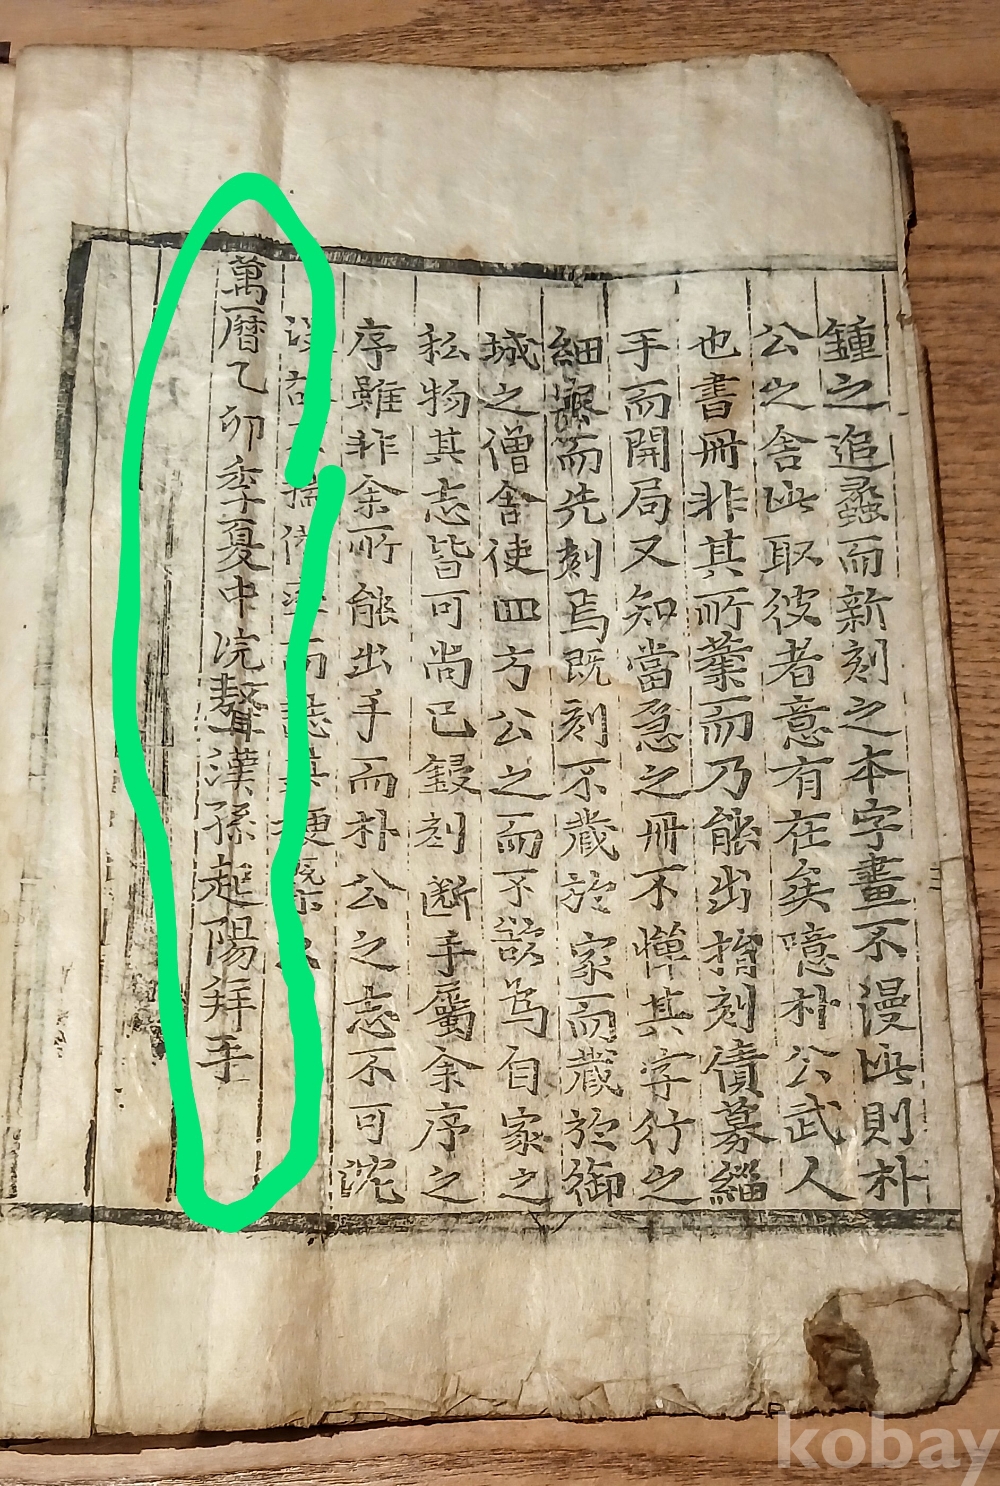 鍾之追蠡而新刻之本字畫不漫此則朴
公之舍此取彼者意有在矣噫朴公武人
也書冊非其所業而乃能出捐刻債募緇
手而開局又知當急之冊不憚其字行之
細而先刻焉既刻不藏於家而藏於御
城之僧舍使四方公之而不欲為自家之
私物其志皆可尚已鋟刻斷手屬余序之
序雖非余所能出手而朴公之志不可沈
沒故 而誌其梗槩
萬曆乙卯季夏中浣聱漢孫起陽拜手
kobay